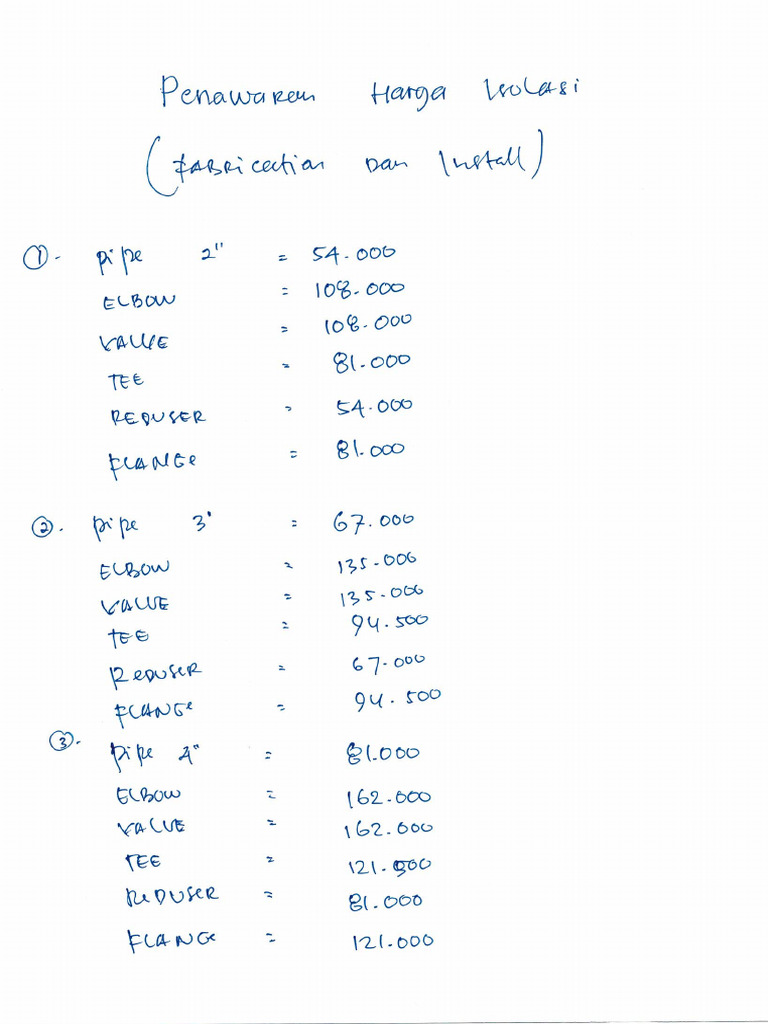 Penawaran Harga Isolasi
(FABRICATION DAN Install)
①. pipe 2" = 54.000
ELBOW = 108.000
VALVE = 108.000
TEE = 81.000
REDUSER = 54.000
FLANGE = 81.000
②. pipe 3" = 67.000
ELBOW = 135.000
VALVE = 135.000
TEE = 94.500
REDUSER = 67.000
FLANGE = 94.500
③. pipe 4" = 81.000
ELBOW = 162.000
VALVE = 162.000
TEE = 121.000
REDUSER = 81.000
FLANGE = 121.000